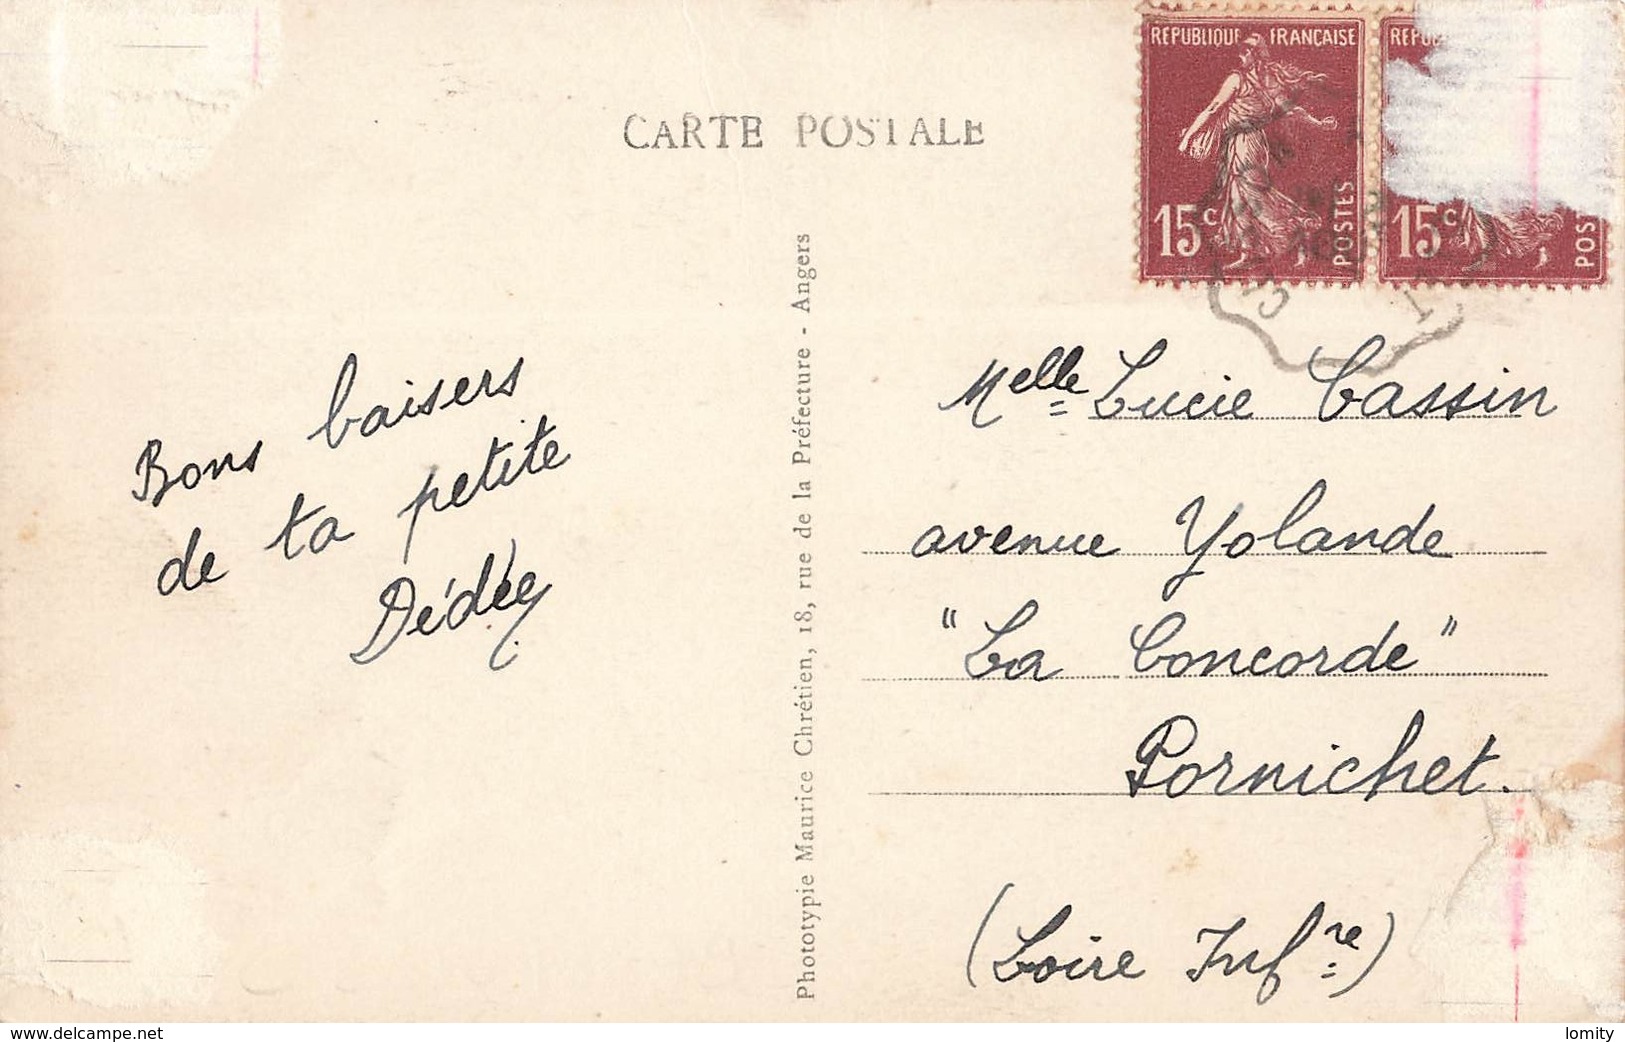 CARTE POSTALE
RÉPUBLIQUE FRANÇAISE
15c
POSTES
RÉPU
15c
POS
Bons baisers
de ta petite
Dédée
Phototypie Maurice Chrétien, 18, rue de la Préfecture - Angers
Melle Lucie Cassin
avenue Yolande
"La Concorde"
Pornichet.
(Loire Infre)
www.delcampe.net
lomity